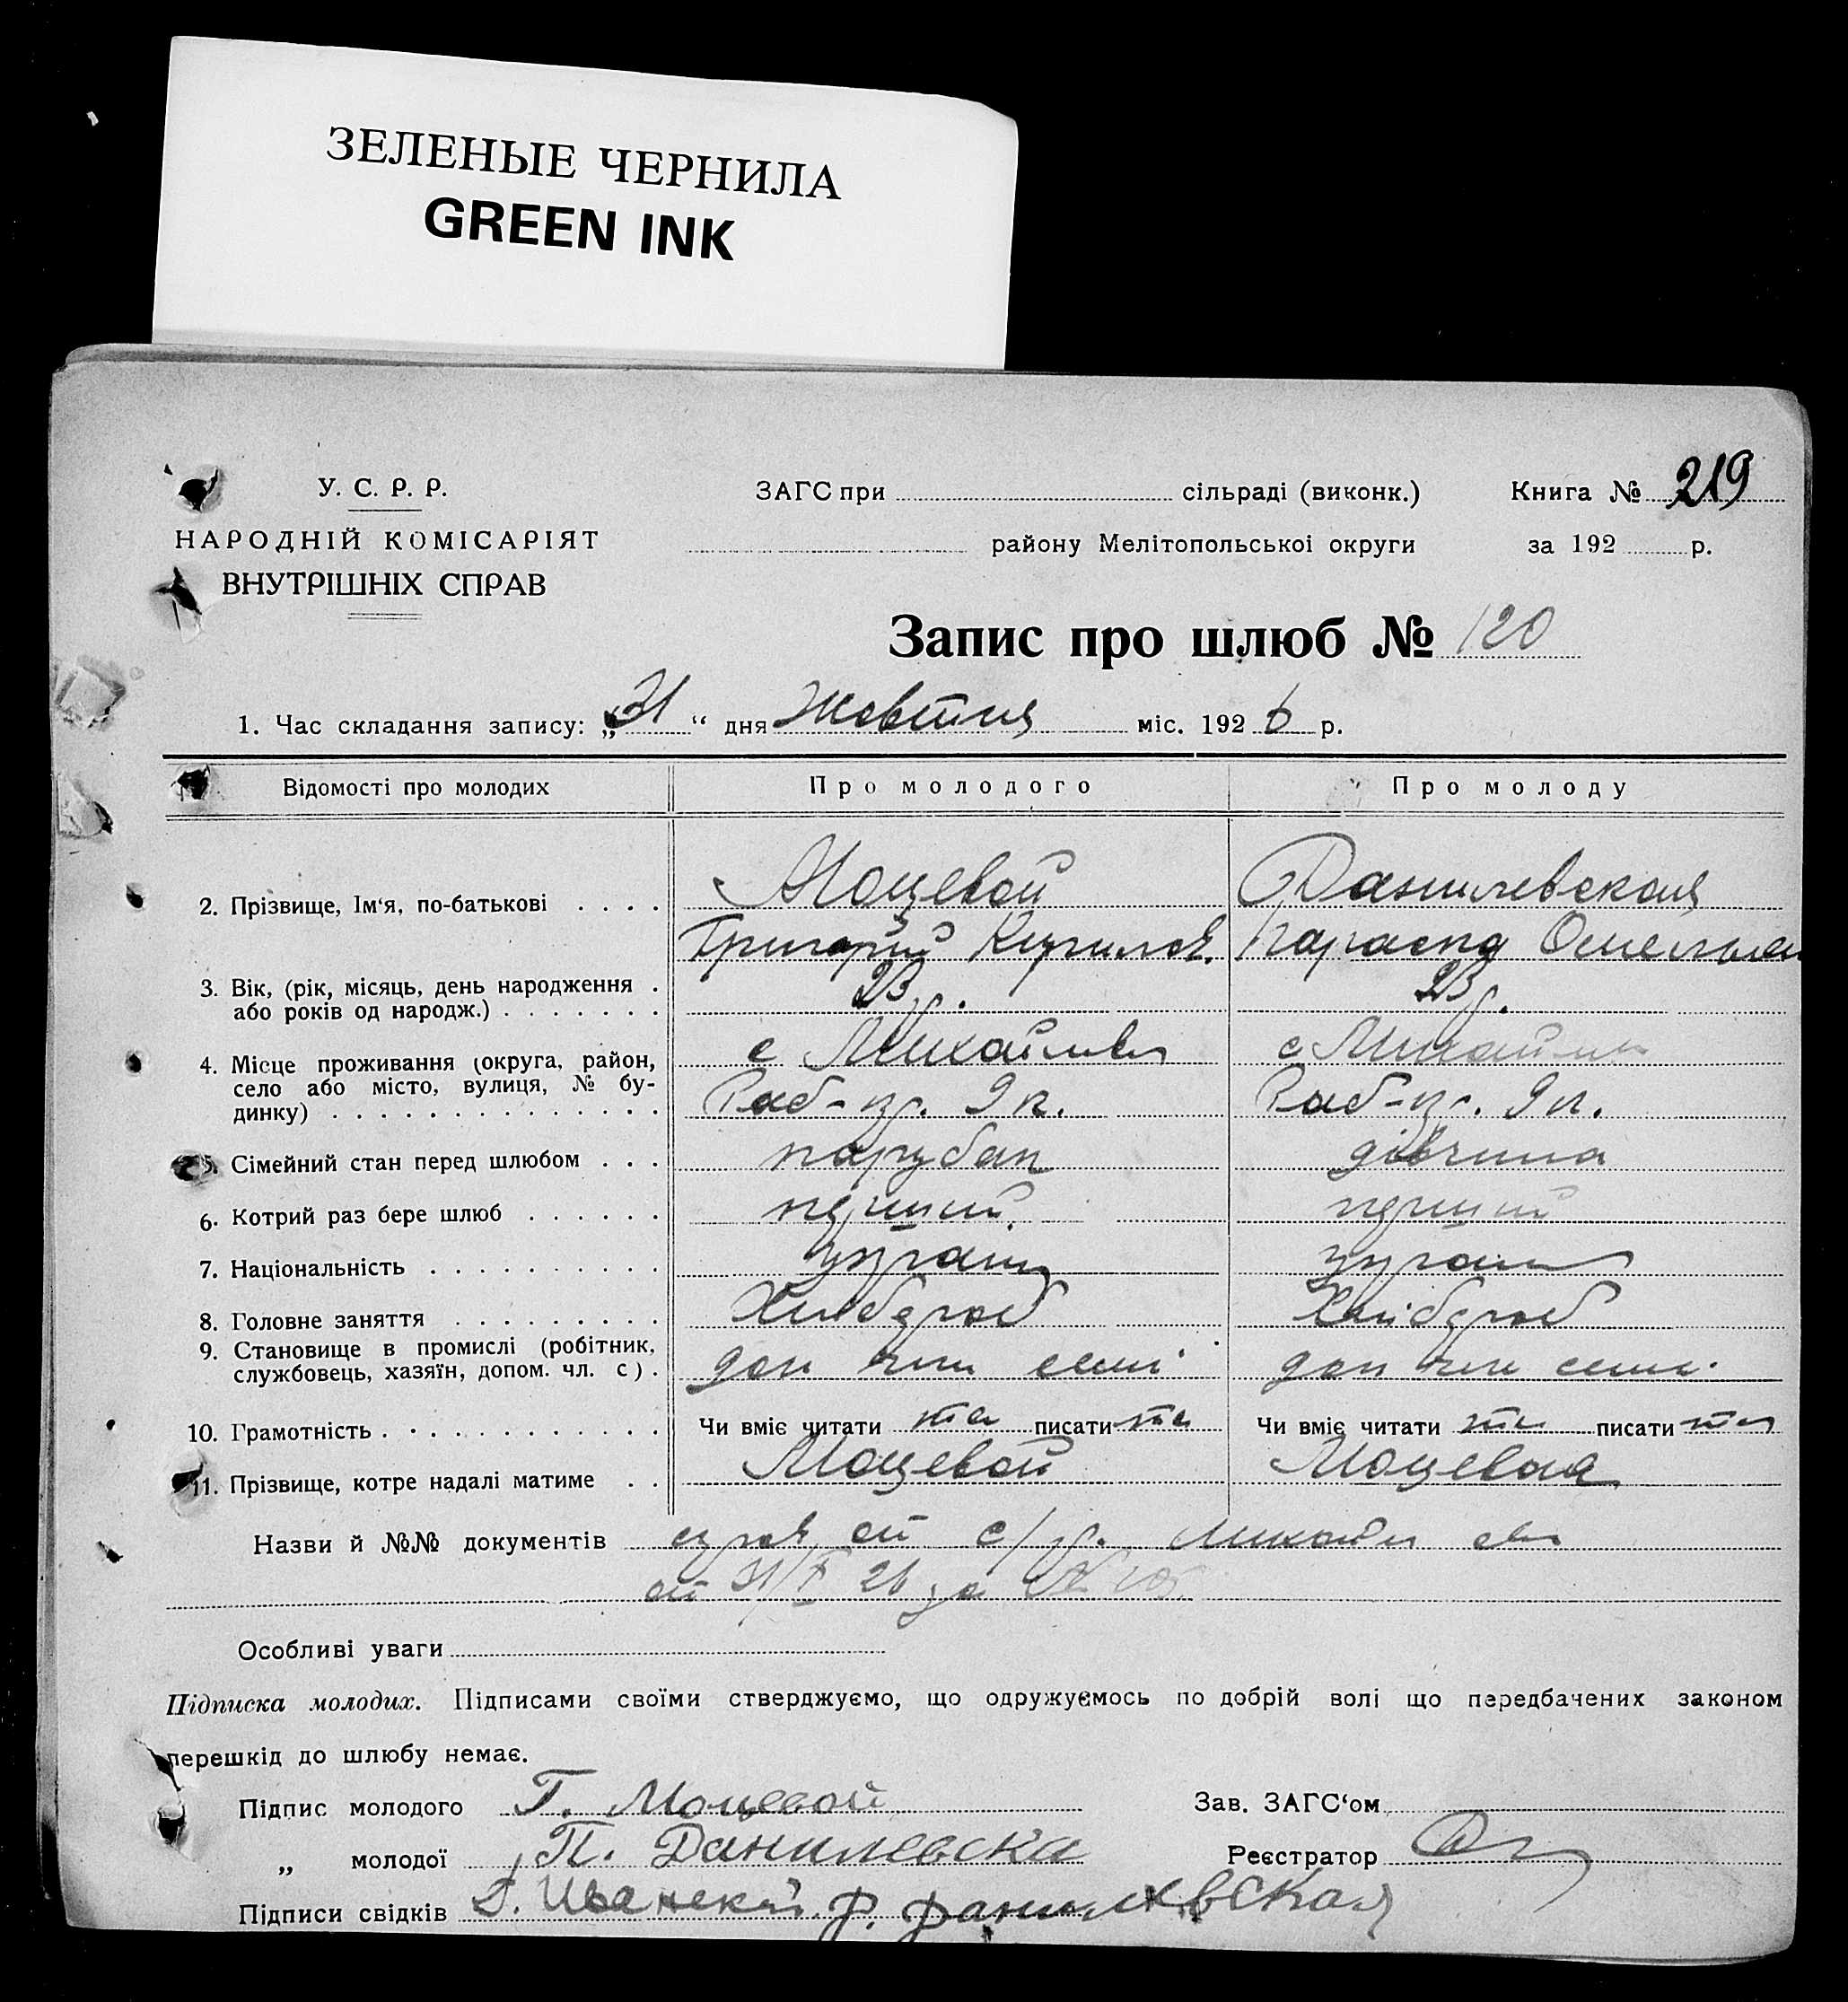 ЗЕЛЕНЫЕ ЧЕРНИЛА
GREEN INK
У. С. Р. Р.
НАРОДНІЙ КОМІСАРІЯТ
ВНУТРІШНІХ СПРАВ
ЗАГС при сільраді (виконк.)
району Мелітопольської округи
Книга № 219
за 192 р.
Запис про шлюб № 120
1. Час складання запису: „31“ дня Жовтня міс. 1926 р.
Відомості про молодих Про молодого Про молоду
2. Прізвище, Ім‘я, по-батькові Моцевой Данилевская
Григорий Кирилов. Параска Омельян
3. Вік, (рік, місяць, день народження
або років од народж.) 23 р. 23 р.
4. Місце проживання (округа, район, с Михайлівка с Михайлівка
село або місто, вулиця, № бу-
динку) 9 п. 9 п.
5. Сімейний стан перед шлюбом парубак дівчина
6. Котрий раз бере шлюб перший перший
7. Національність україн україн
8. Головне заняття Хлібороб Хлібороб
9. Становище в промислі (робітник,
службовець, хазяїн, допом. чл. с) доп член семі доп член семі
10. Грамотність Чи вміє читати так писати так Чи вміє читати так писати так
11. Прізвище, котре надалі матиме Моцевой Моцевая
Назви й №№ документів от с/р. Михайлівки
от 31/X 26 за №
Особливі уваги
Підписка молодих. Підписами своїми стверджуємо, що одружуємось по добрій волі що передбачених законом
перешкід до шлюбу немає.
Підпис молодого Г. Моцевой
Зав. ЗАГС‘ом
„ молодої П. Данилевска
Реєстратор
Підписи свідків Ф. Данилевская